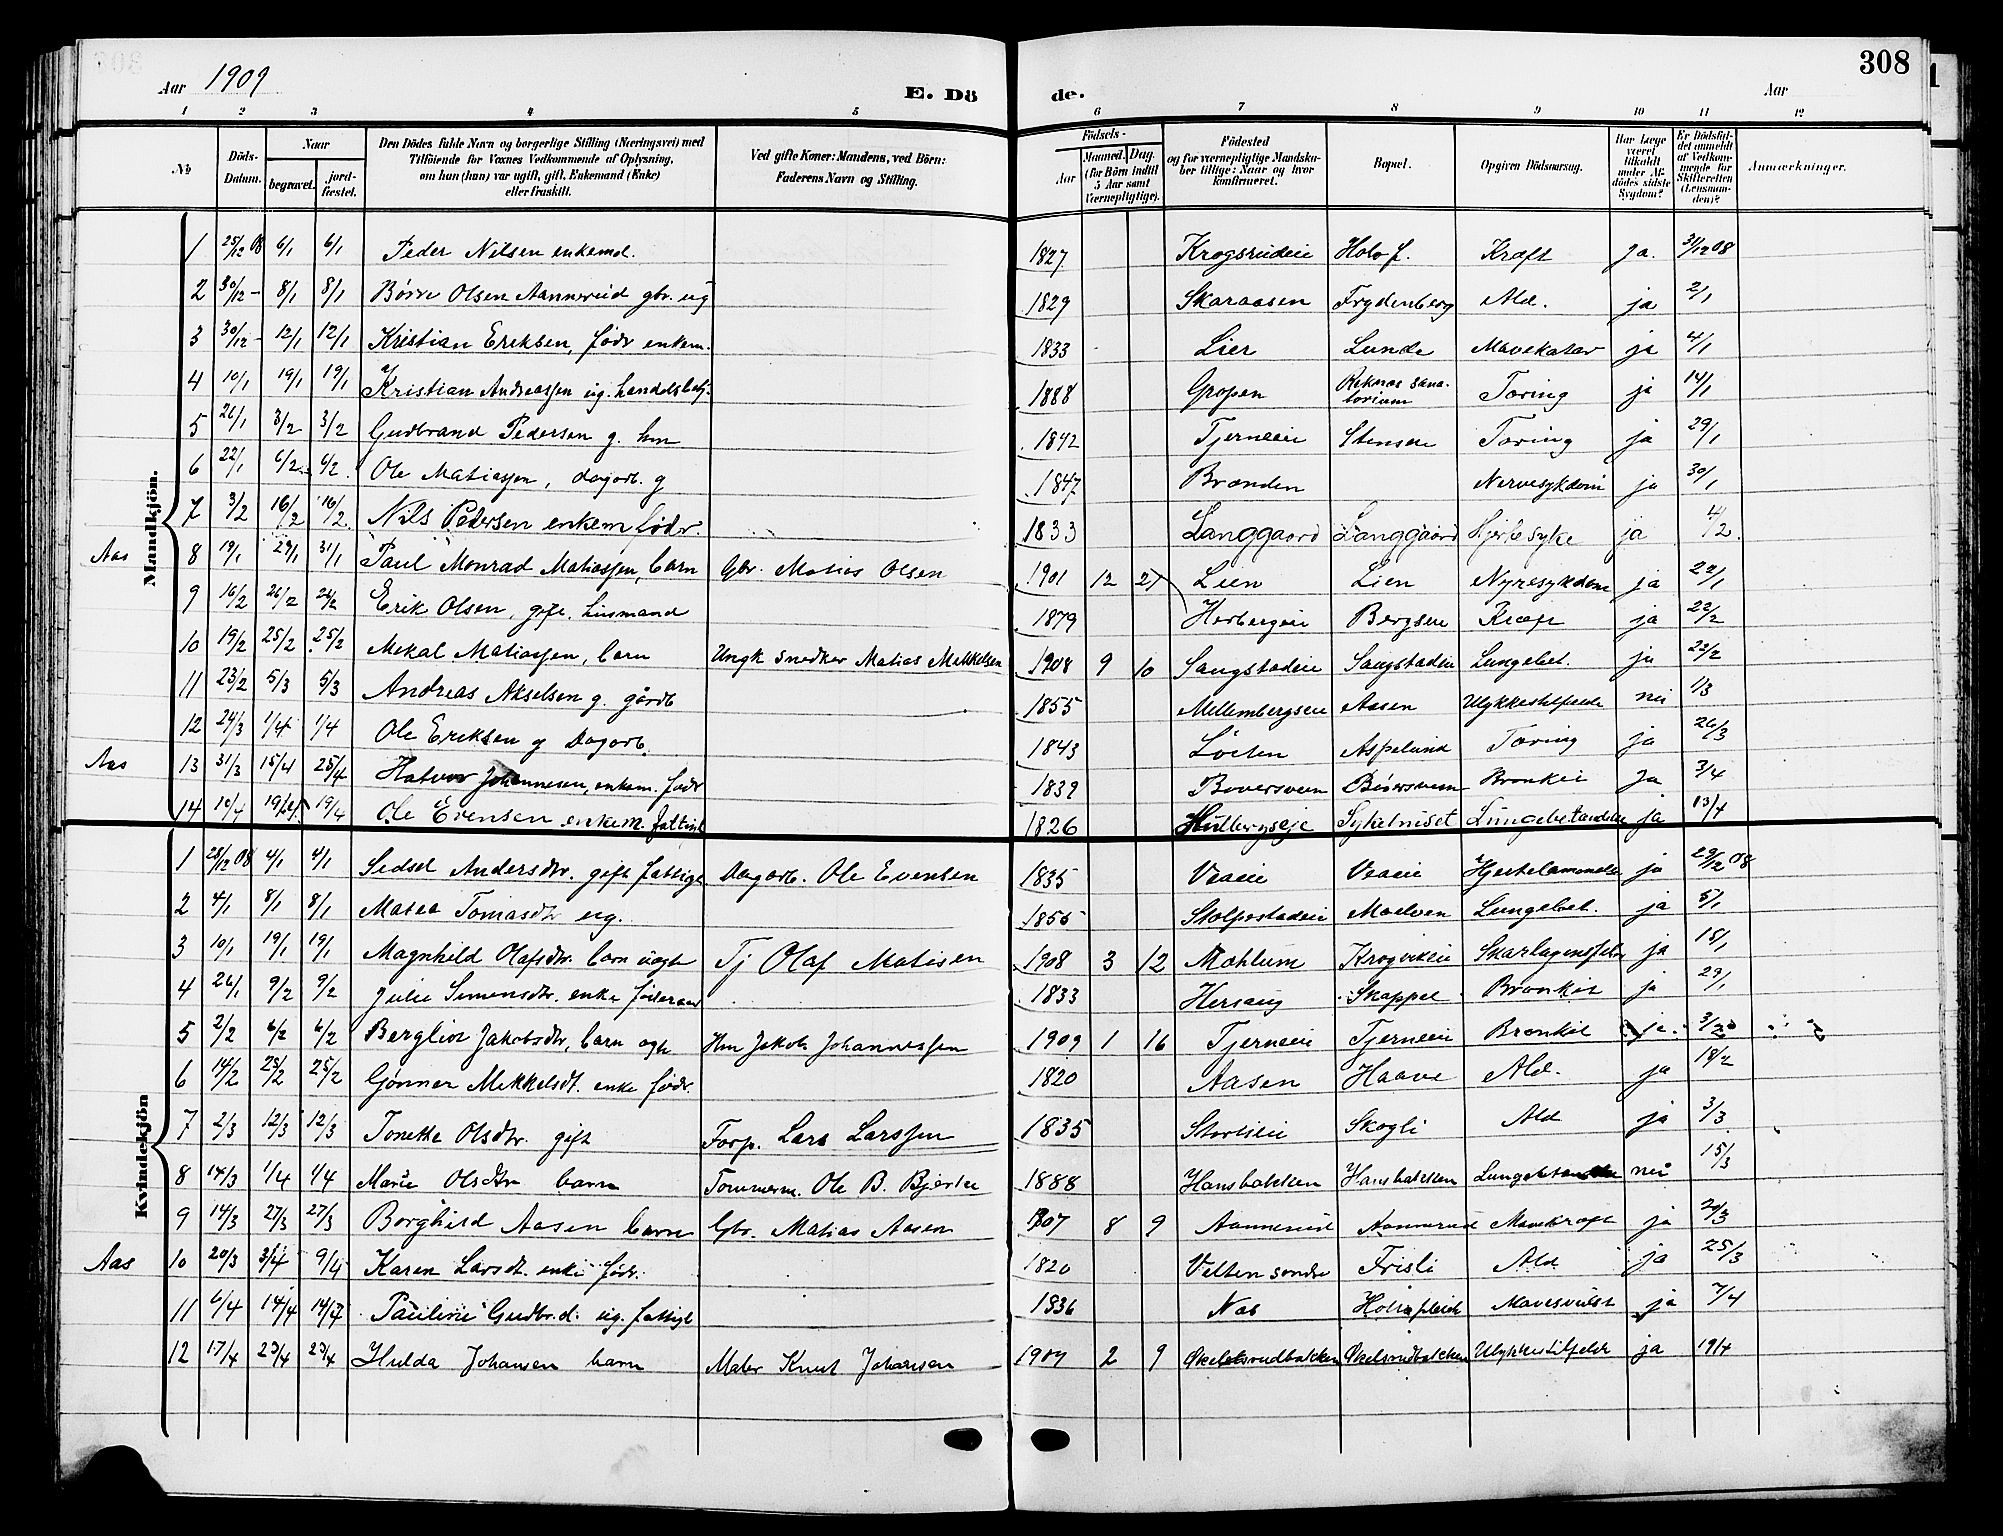 308
Aar 1909
E. Dö de.
Aar
1 2 3 4 5 6 7 8 9 10 11 12
No
Döds-Datum.
Naar
begravet.
jordfæstet.
Den Dödes fulde Navn og borgerlige Stilling (Næringsvei) med Tilföiende for Voxnes Vedkommende af Oplysning, om han (hun) var ugift, gift, Enkemand (Enke) eller fraskilt.
Ved gifte Koner: Mandens, ved Börn: Faderens Navn og Stilling.
Födsels-
Aar
Maaned. Dag.
(for Börn indtil 5 Aar samt Værnepligtige).
Födested og for værnepligtige Mandskaber tillige: Naar og hvor konfirmeret.
Bopæl.
Opgiven Dödsaarsag.
Har Læge været tilkaldt under Afdödes sidste Sygdom?
Er Dödsfaldet anmeldt af Vedkommende for Skifteretten (Lensmanden)?
Anmærkninger.
Mandkjön.
1 25/12 08 6/1 6/1 Peder Nilsen enkemd. 1827 Krogsrudeie Holo f. Kræft Ja. 31/12 08
2 30/12 – 8/1 8/1 Børre Olsen Aannerud gbr. ug 1829 Skaraasen Frydenberg Ald. ja 2/1
3 30/12 – 12/1 12/1 Kristian Eriksen, födr enkem. 1833 Lier Lunde Mavekatar ja 4/1
4 10/1 19/1 19/1 Kristian Andreassen ug. handelsbetj. 1888 Gropen Reknes sanatorium Tæring ja 14/1
5 26/1 3/2 3/2 Gudbrand Pedersen g. hm 1842 Tjerneeie Stenseie Tæring ja 29/1
6 22/1 6/2 6/2 Ole Matiassen, dagarb. g 1847 Brænden Nervesykdom ja 30/1
7 3/2 16/2 16/2 Nils Pedersen enkem födr. 1833 Langgaard Langgaard Hjertesyke ja 4/2
Aas 8 19/1 29/1 31/1 Paul Monrad Matiassen, barn Gbr. Matias Olsen 1901 12 27 Lien Lien Nyresykdom ja 22/1
9 16/2 26/2 26/2 Erik Olsen, gift, husmand 1879 Herbergeie Bergseie Kræft ja 22/2
10 19/2 25/2 25/2 Mekal Matiassen, barn Ungk snedker Matias Mikkelsen 1908 9 10 Saugstadeie Saugstadeie Lungebet. ja 22/2
11 23/2 5/3 5/3 Andreas Akselsen g. gårdb 1855 Mellembergseie Aasen Ulykkestilfælde nei 1/3
12 24/3 1/4 1/4 Ole Eriksen g Dagarb. 1843 Løiten Aspelund Tæring ja 26/3
Aas 13 31/3 15/4 25/4 Halvor Johannesen, enkem. födr 1839 Bæversveen Bæversveen Bronkit Ja 3/4
14 10/4 19/4 19/4 Ole Evensen enkem. fattigl 1826 Hullbergseie Sykehuset Lungebetændelse ja 13/4
Kvindekjön
1 28/12 08 4/1 4/1 Sidsel Andersdtr. gift fattigl Dagarb. Ole Evensen 1835 Vraeie Vraeie Hjertelammelse ja 29/12 08
2 4/1 8/1 8/1 Matea Tomasdtr ug. 1856 Stolpestadeie Moelven Lungebet. ja 5/1
3 10/1 19/1 19/1 Magnhild Olafsdtr. barn uægte Tj Olaf Matisen 1908 3 12 Mæhlum Krogvikeie Skarlagensfeber ja 15/1
4 26/1 9/2 9/2 Julie Simensdtr. enke föderaad 1833 Hersaug Skappel Bronkit ja 29/1
5 2/2 6/2 6/2 Bergliot Jakobsdtr, barn ægte Hm Jakob Johannessen 1909 1 16 Tjerneeie Tjerneeie Bronkit ja 3/2
6 14/2 25/2 25/2 Gønner Mikkelsdt. enke födr. 1820 Aasen Haave Ald. ja 18/2
7 2/3 12/3 12/3 Tonette Olsdtr. gift Forp. Lars Larssen 1835 Stortieie Skogli Ald ja 3/3
8 14/3 1/4 1/4 Marie Olsdtr barn Tømmerm. Ole B. Bjerke 1888 Hansbakken Hansbakken Lungebetændelse nei 15/3
9 14/3 27/3 27/3 Borghild Aasen barn Gbr. Matias Aasen 1907 8 9 Aannerud Aannerud Mavekræft ja 20/3
Aas 10 20/3 3/4 9/4 Karen Larsdt. enke födr. 1820 Velten søndre Frisli Ald ja 25/3
11 6/4 14/4 14/4 Pauline Gudbr.d. ug. fattigl 1836 Næs Holo fleick Mavesvulst ja 7/4
12 17/4 23/4 23/4 Hulda Johansen barn Maler Knut Johansen 1907 2 9 Økelsrudbakken Økelsrudbakken Ulykkestilfælde ja 19/4